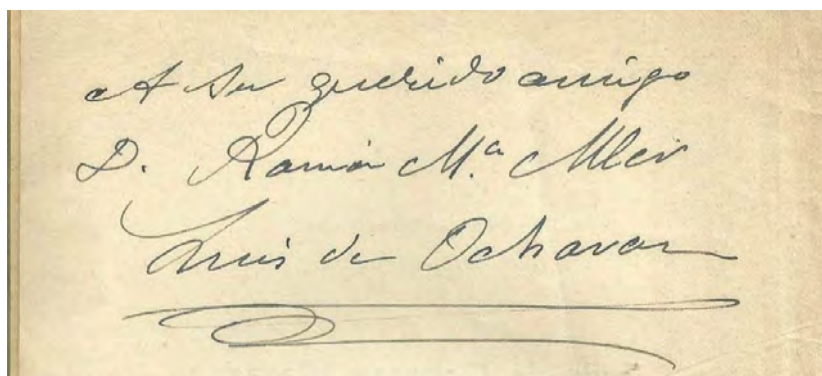 A su querido amigo
D. Ramón M.ª Aller
Luis de Ocharan